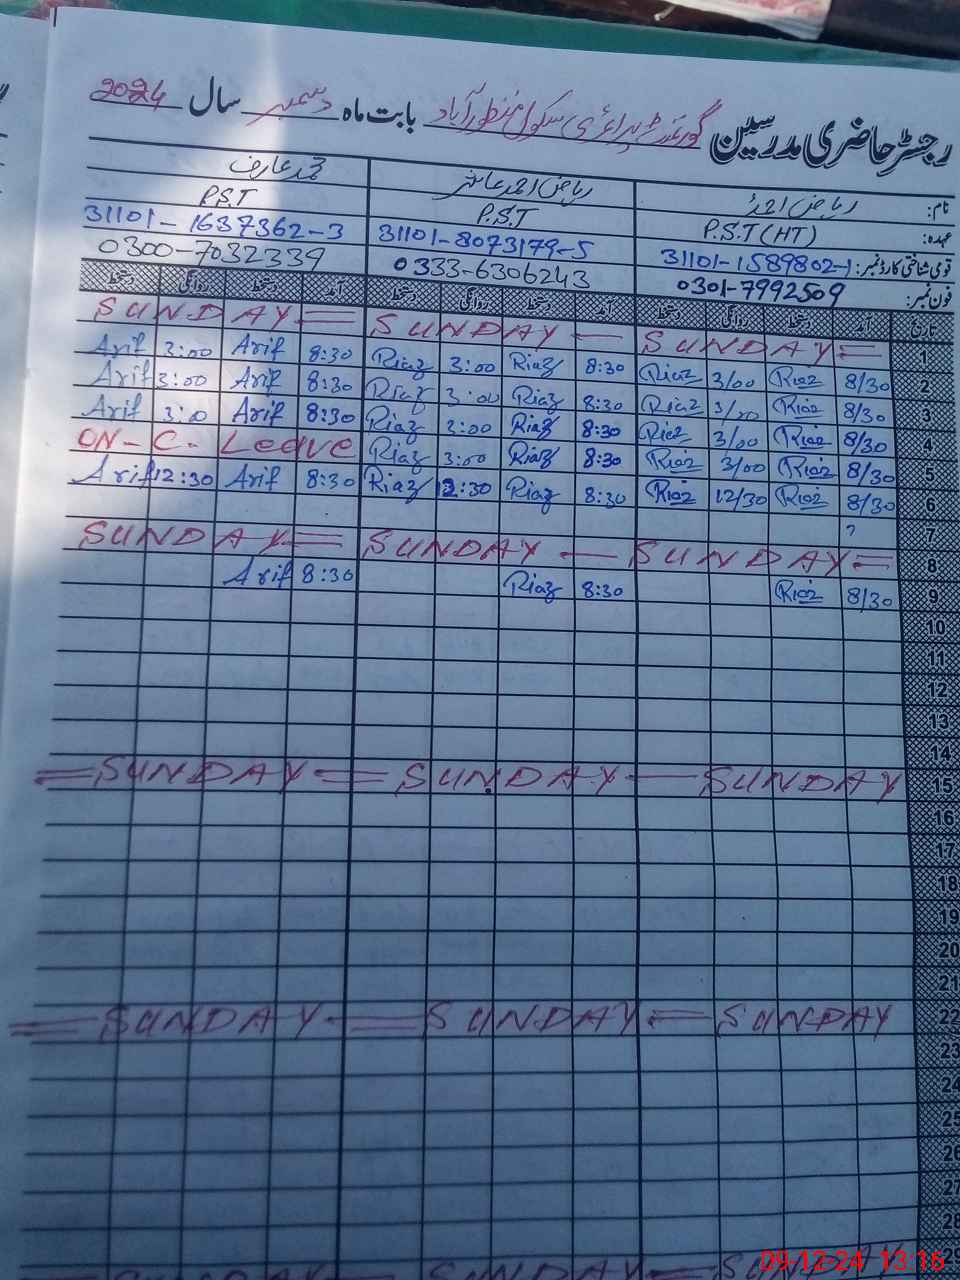 رجسٹر حاضری مدرسین گورنمنٹ پرائمری سکول منظورآباد بابت ماہ دسمبر سال 2024
نام: ریاض احمد ریاض احمد عاشر محمد عارف
عہدہ: P.S.T (HT) P.S.T P.S.T
قومی شناختی کارڈ نمبر: 31101-1589802-1 31101-8073179-5 31101-1637362-3
فون نمبر: 0301-7992509 0333-6306243 0300-7032339
تاریخ آمد دستخط روانگی دستخط آمد دستخط روانگی دستخط آمد دستخط روانگی دستخط
SUNDAY = SUNDAY — SUNDAY = 1
Arif 3:00 Arif 8:30 Riaz 3:00 Riaz 8:30 Riaz 3/00 Riaz 8/30 2
Arif 3:00 Arif 8:30 Riaz 3:00 Riaz 8:30 Riaz 3/00 Riaz 8/30 3
Arif 3:0 Arif 8:30 Riaz 3:00 Riaz 8:30 Riaz 3/00 Riaz 8/30 4
ON-C-Leave Riaz 3:00 Riaz 8:30 Riaz 3/00 Riaz 8/30 5
Arif 12:30 Arif 8:30 Riaz 12:30 Riaz 8:30 Riaz 12/30 Riaz 8/30 6
7
SUNDAY = SUNDAY — SUNDAY = 8
Arif 8:30 Riaz 8:30 Riaz 8/30 9
10
11
12
13
14
= SUNDAY = SUNDAY — SUNDAY 15
16
17
18
19
20
21
= SUNDAY = SUNDAY = SUNDAY 22
23
24
25
26
27
28
SUNDAY SUNDAY SUNDAY 29
09-12-24 13:16